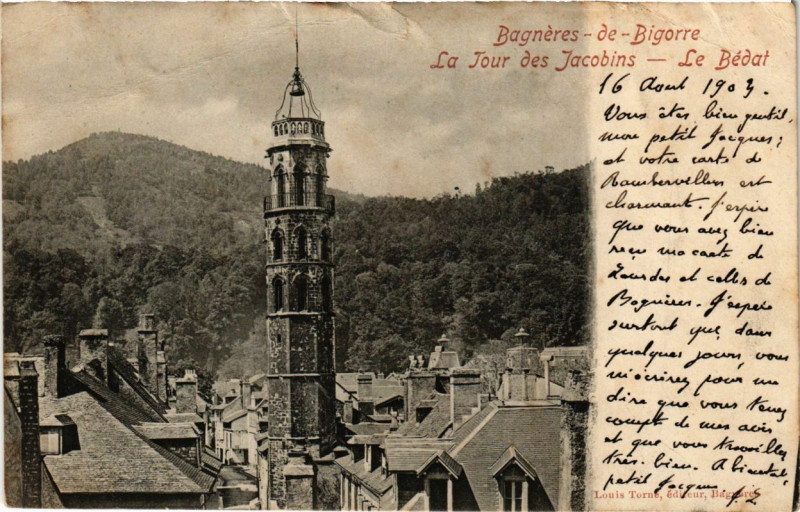 Bagnères-de-Bigorre
La Tour des Jacobins — Le Bédat
16 Aout 1903.
Vous êtes bien gentil,
mon petit Jacques,
et votre carte de
Rambervillers est
charmante. J'espère
que vous avez bien
reçu ma carte de
Lourdes et celles de
Bagnères. J'espère
surtout que, dans
quelques jours, vous
m'écrirez pour me
dire que vous tenez
compte de mes avis
et que vous travaillez
très bien. A bientôt,
petit Jacques
Louis Torné, éditeur, Bagnères